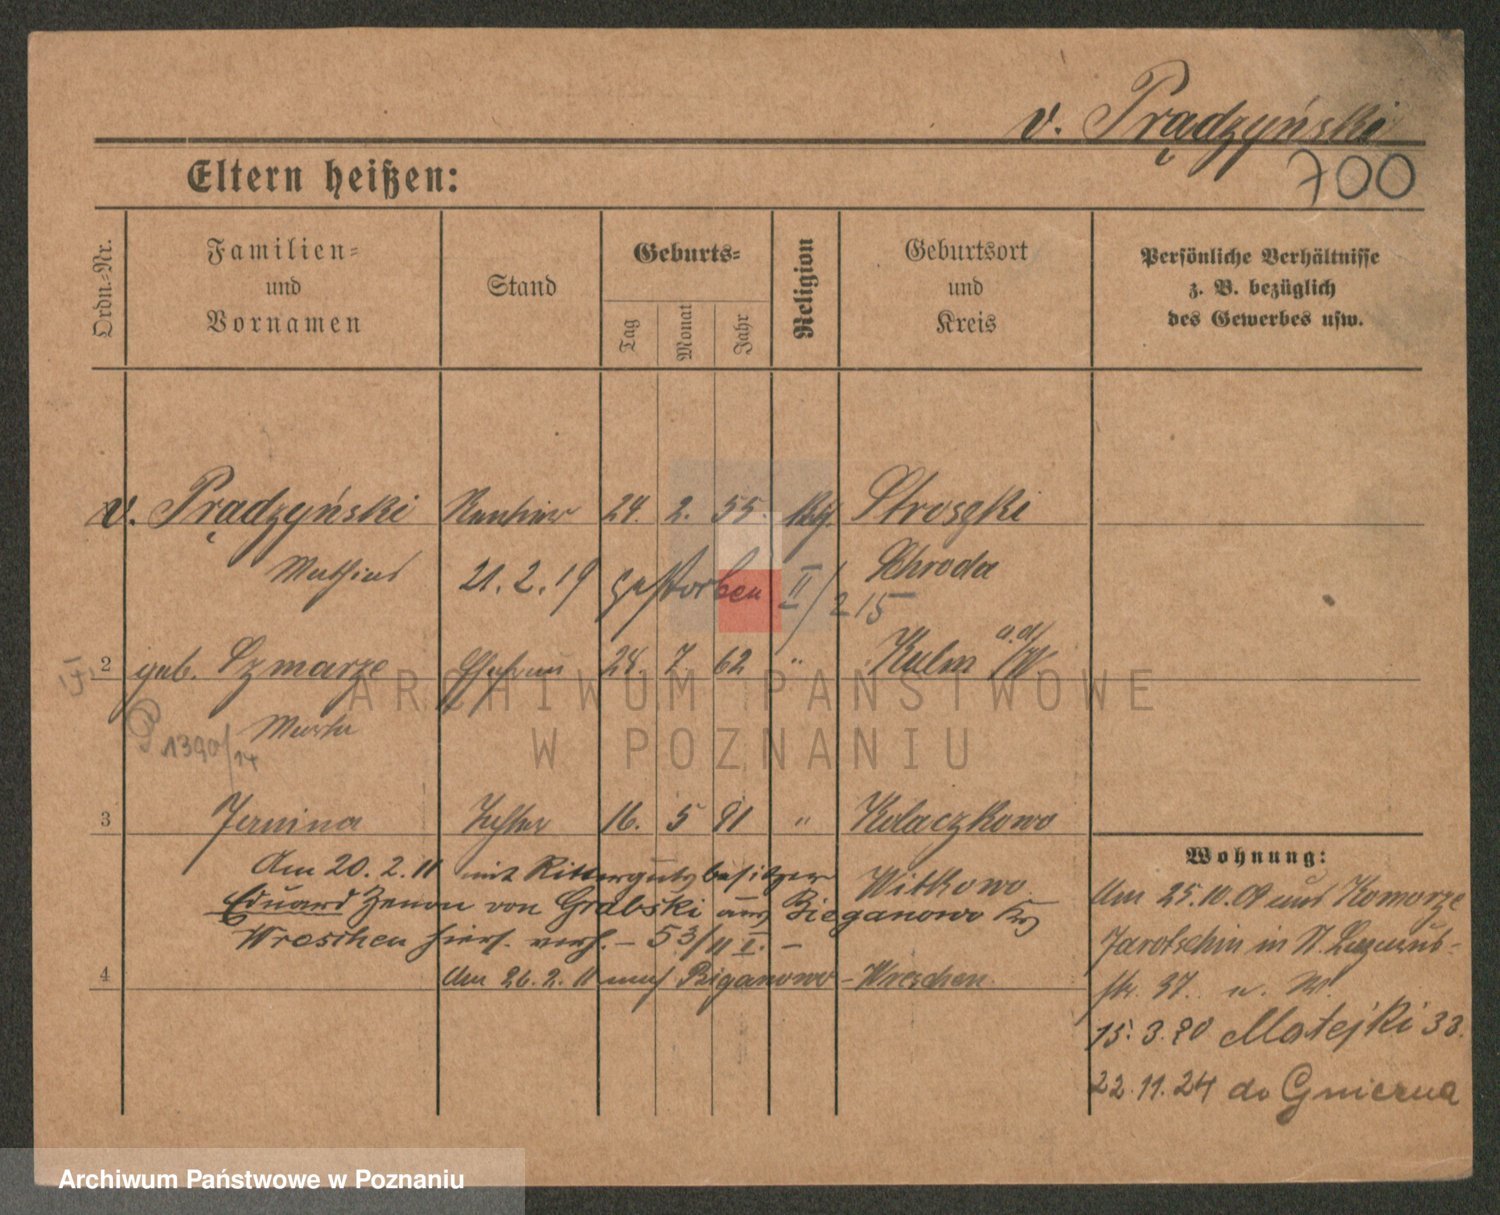 v. Prądzyński
700
Eltern heißen:
Ordn.-Nr.
Familien-
und
Vornamen
Stand
Geburts-
Tag
Monat
Jahr
Religion
Geburtsort
und
Kreis
Persönliche Verhältnisse
z. B. bezüglich
des Gewerbes usw.
v. Prądzyński Rentier 24. 2. 55. kth. Stroszki
Mathias 21.2.19 gestorben II/215 Schroda
2 geb. Szmarze Ehefrau 24. 7. 62 " Kulm a.d/W
Marta
P 1390/14
ARCHIWUM PAŃSTWOWE
W POZNANIU
3 Janina Tochter 16. 5 91 " Kolaczkowo
Witkowo
Am 20.2.11 mit Rittergutsbesitzer
Eduard Zenon von Grabski aus Bieganowo Kr
Wreschen hier verh. – 53/11 I. –
4 Am 26.2.11 nach Bieganowo – Wreschen.
Wohnung:
Am 25.10.09 aus Komorze
Jarotschin in St.
str. 37.
15.3.20 Matejki 33.
22.11.24 do Gniezna
Archiwum Państwowe w Poznaniu